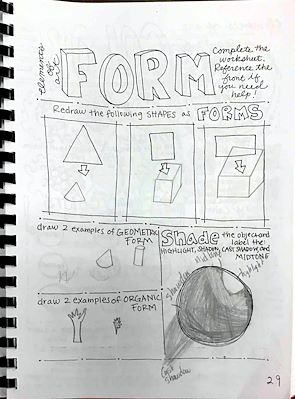 elements
of
art
FORM
Complete the
worksheet.
Reference the
front if
you need
help!
Redraw the following SHAPES as FORMS
draw 2 examples of GEOMETRIC
FORM
Shade the object and
label the:
HIGHLIGHT, SHADOW, CAST SHADOW, and
MIDTONE
draw 2 examples of ORGANIC
FORM
Shadow
Mid tone
highlight
Cast
Shadow
29